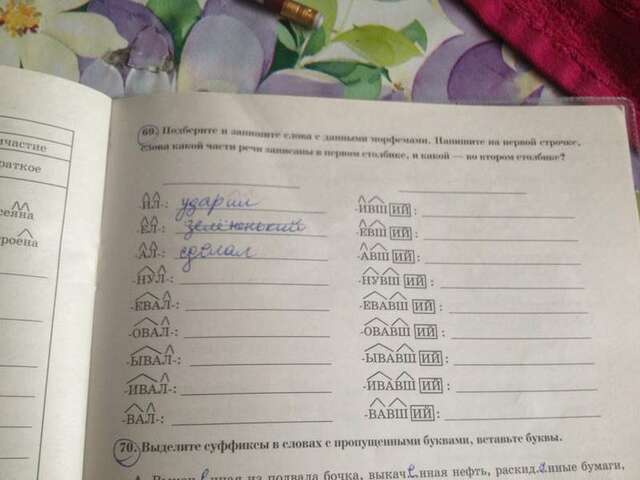 69. Подберите и запишите слова с данными морфемами. Напишите на первой строчке,
слова какой части речи записаны в первом столбике, и какой — во втором столбике?
частие
раткое
сеяна
троена
-ИЛ-: ударил
-ЕЛ-: зелененький
-АЛ-: сделал
-НУЛ-:
-ЕВАЛ-:
-ОВАЛ-:
-ЫВАЛ-:
-ИВАЛ-:
-ВАЛ-:
-ИВШ ИЙ :
-ЕВШ ИЙ :
-АВШ ИЙ :
-НУВШ ИЙ :
-ЕВАВШ ИЙ :
-ОВАВШ ИЙ :
-ЫВАВШ ИЙ :
-ИВАВШ ИЙ :
-ВАВШ ИЙ :
70. Выделите суффиксы в словах с пропущенными буквами, вставьте буквы.
из подвала бочка, выкаченная нефть, раскиданные бумаги,